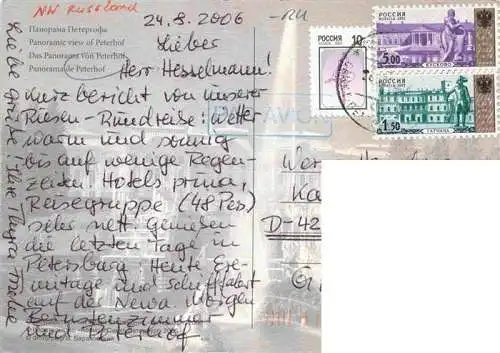 NW Russland
24.8.2006
-RU
Панорама Петергофа
Panoramic view of Peterhof
Das Panorama von Peterhof
Panorama de Peterhof
Lieber
Herr Hesselmann!
Kurzbericht von unserer
Riesen-Rundreise: Wetter
warm und sonnig
bis auf wenige Regen-
zeiten Hotels prima,
Reisegruppe (48 Pers)
sehr nett Genießen
die letzten Tage in
Petersburg Heute Ere-
mitage und Schiffahrt
auf der Newa Morgen
Bernsteinzimmer
und Peterhof
Liebe Grüße Ihre
РОССИЯ
10
РОССИЯ ROSSIJA 2002
5.00
КУСКОВО
РОССИЯ ROSSIJA 2002
1.50
ГАТЧИНА
PAR AVION
D-42